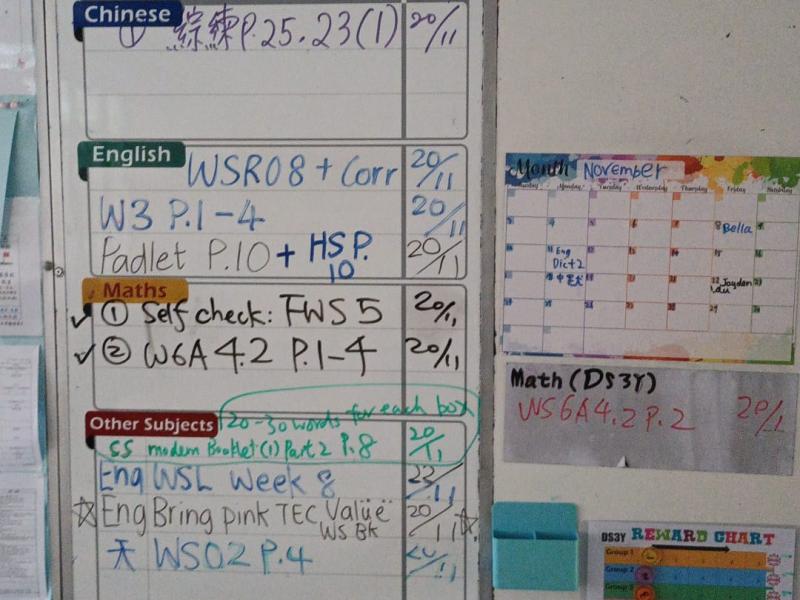 Chinese
① 綜練P.25.23(1) 20/11
English
WSR08 + Corr 20/11
W3 P.1-4 20/11
Padlet P.10 + HS P. 10 20/11
Maths
✓ ① Self check: FWS 5 20/11
✓ ② W6A 4.2 P.1-4 20/11
Other Subjects
20-30 words for each box
SS modern Booklet (1) Part 2 P.8 20/11
Eng WSL Week 8 22/11
☆ Eng Bring pink TEC Value WS BK 20/11 ☆
天 WS02 P.4 20/11
Month November
Monday Tuesday Wednesday Thursday Friday
Bella
Eng
Dict 2
Jayden
Lau
Math (DS3Y)
WS6A4.2 P.2 20/11
DS3Y REWARD CHART
Group 1
Group 2
Group 3